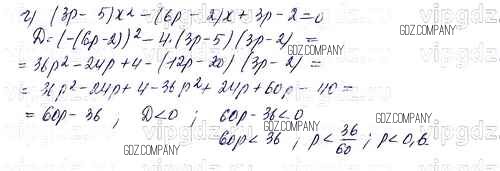 г) (3p - 5)x² - (6p - 2)x + 3p - 2 = 0
D = (-(6p - 2))² - 4·(3p - 5)(3p - 2) =
= 36p² - 24p + 4 - (12p - 20)(3p - 2) =
= 36p² - 24p + 4 - 36p² + 24p + 60p - 40 =
= 60p - 36 ; D < 0 ; 60p - 36 < 0
60p < 36 ; p < 36/60 ; p < 0,6
GDZ.COM
GDZ.COMPANY
GDZ.COMPANY
GDZ.COMPANY
GDZ.COMPANY
GDZ.COMPANY
vipgdz